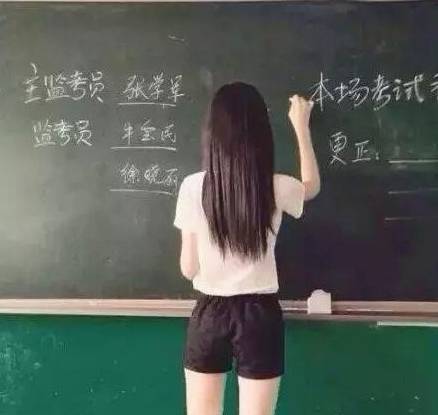 主监考员 张学军
监考员 牛金民
徐晓
本场考试
更正: